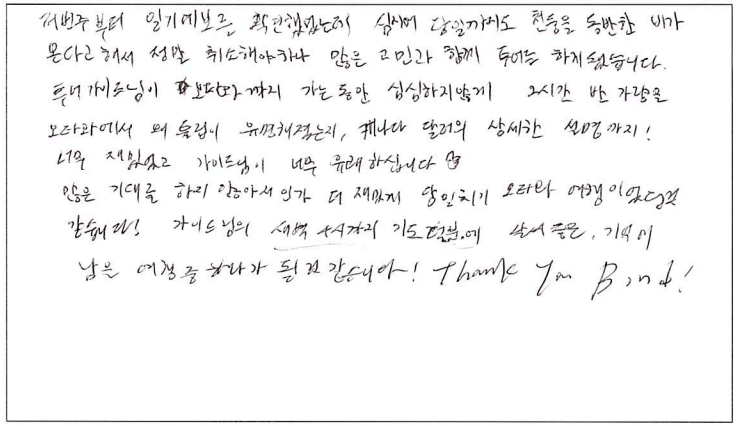 저번주부터 일기예보를 확인했었는데 심지어 당일까지도 천둥을 동반한 비가
온다고해서 정말 취소해야하나 많은 고민과 함께 투어를 하게 됐습니다.
투어가이드님이 오타와까지 가는동안 심심하지않게 2시간 반 가량을
오타와에서 왜 튤립이 유명해졌는지, 캐나다 달러의 상세한 설명까지!
너무 재밌었고 가이드님이 너무 유쾌하십니다
많은 기대를 하지 않아서인가 더 재밌게 당일치기 오타와 여행이었던것
같습니다! 가이드님의 새벽 4시까지 기도덕분에 날씨 좋은, 기억에
남은 여행 중 하나가 될 것 같습니다! Thank You